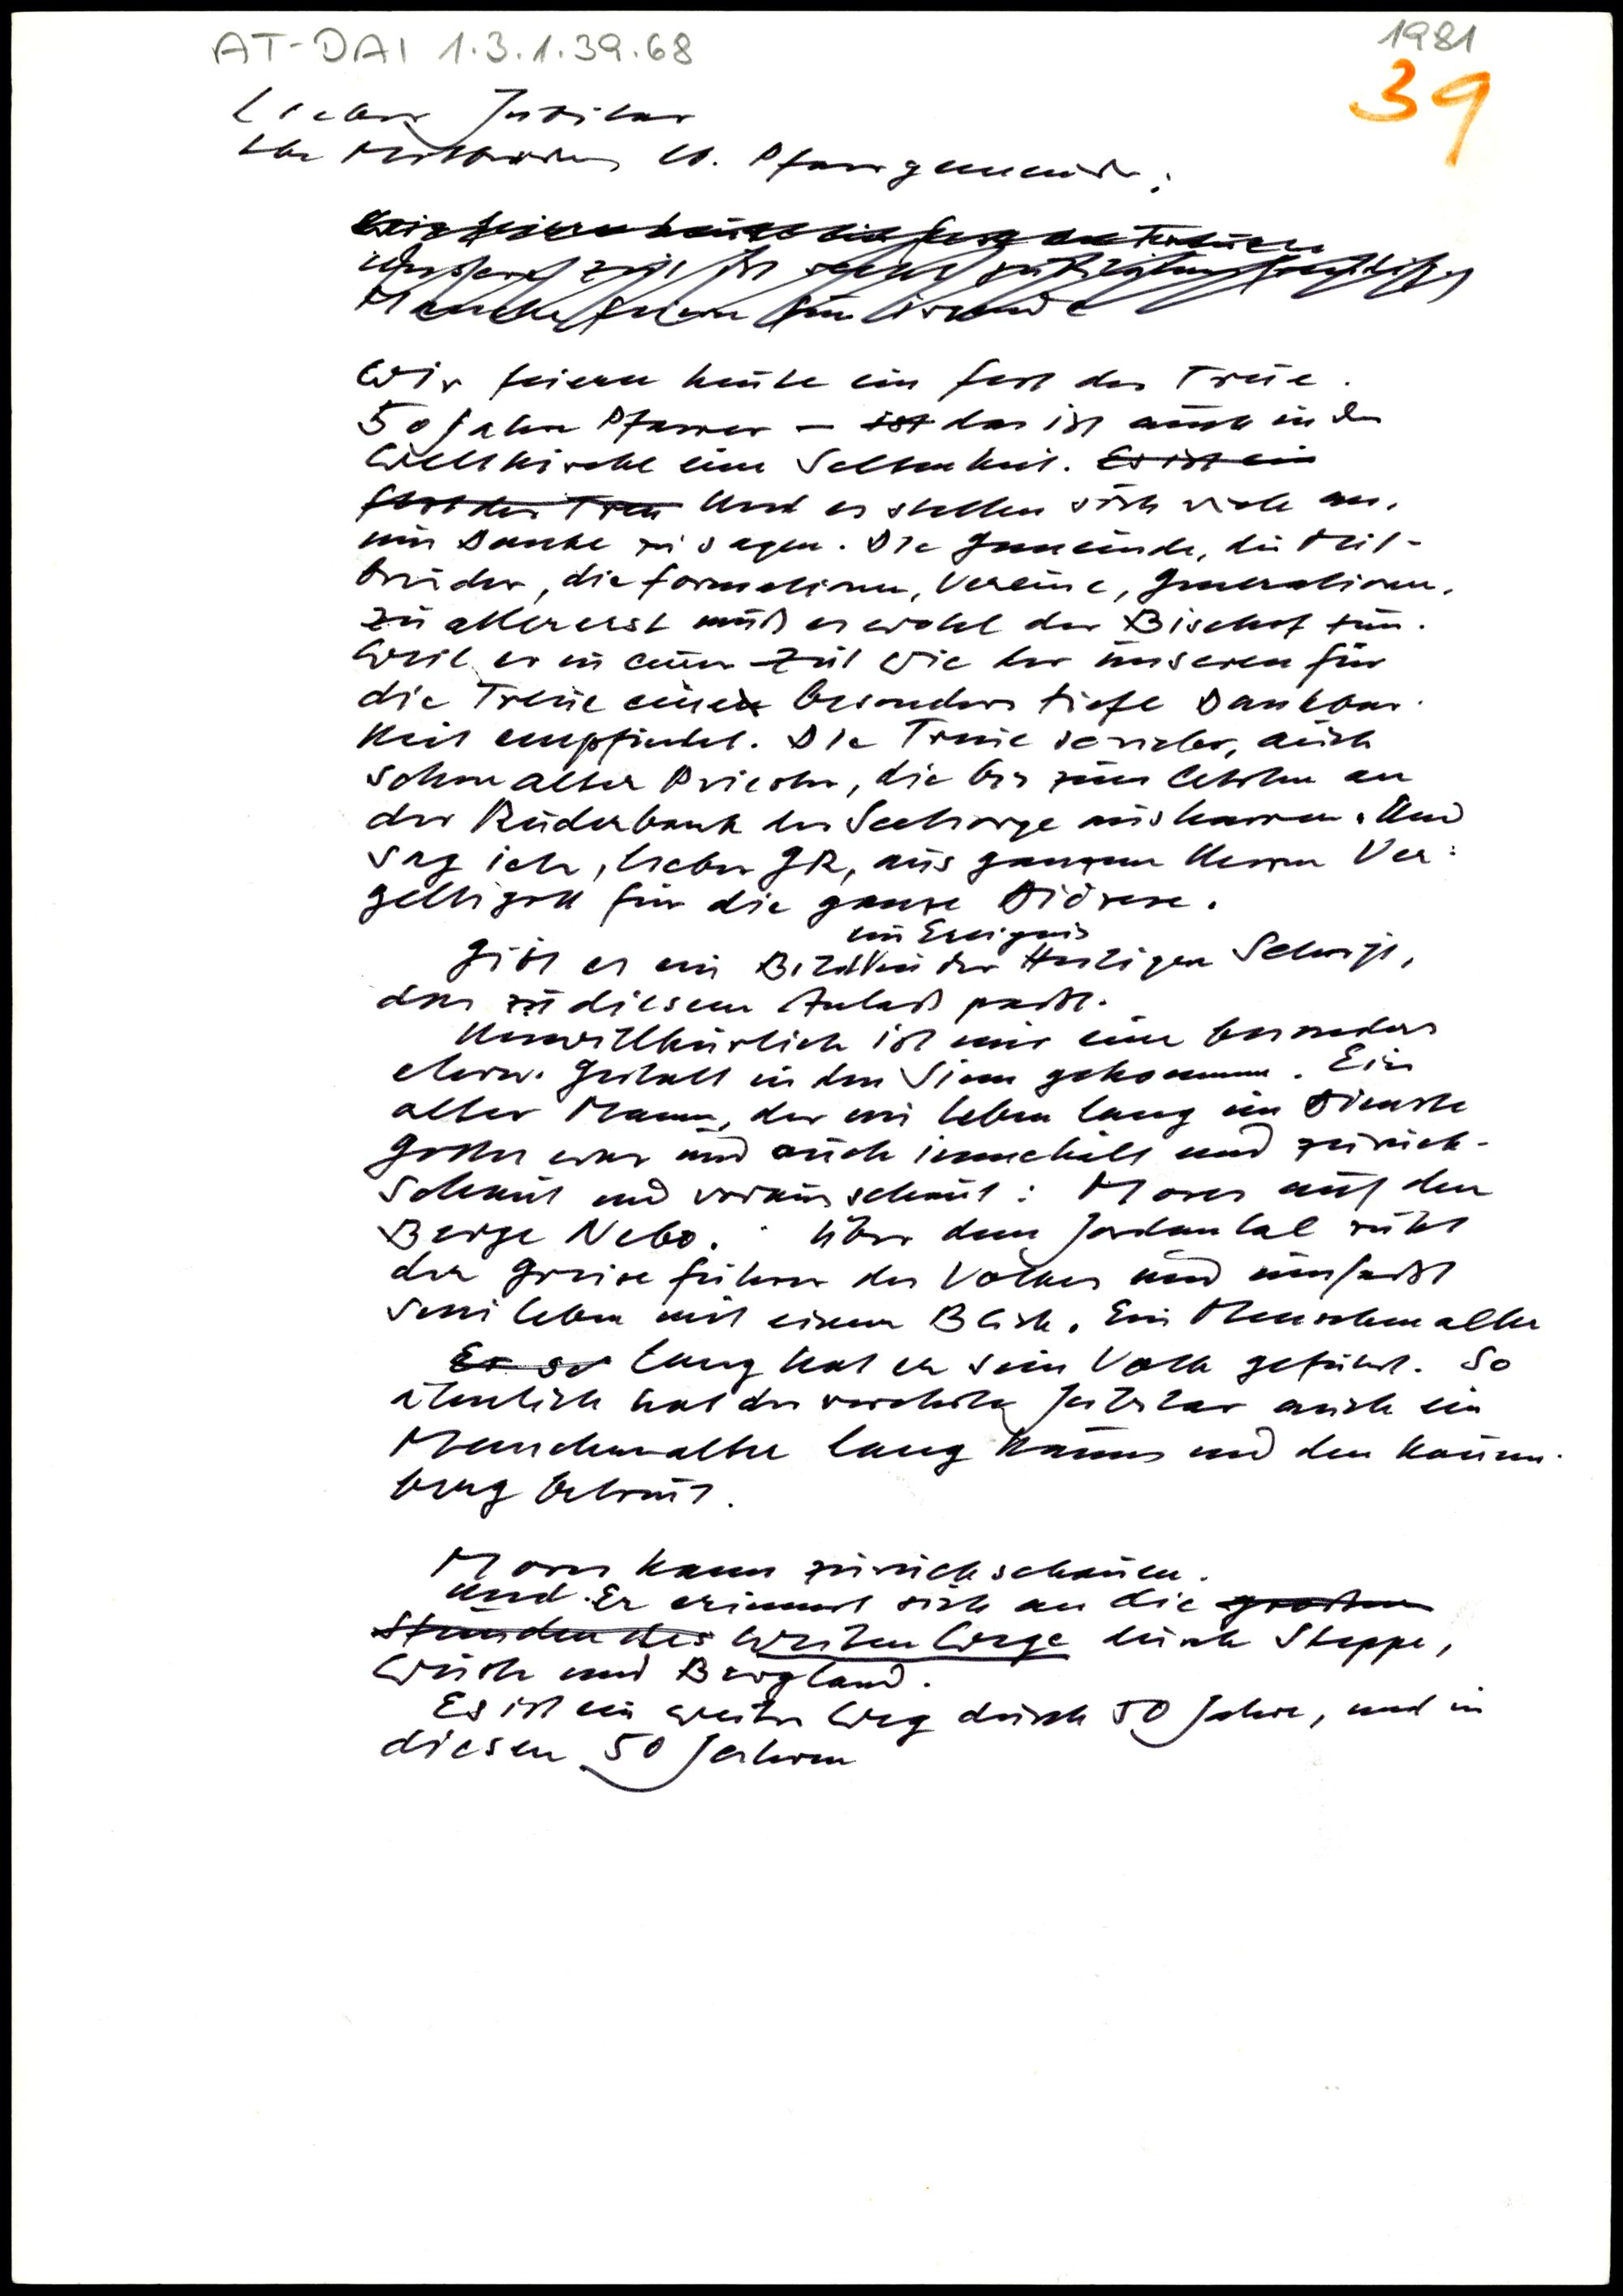 AT-DAI 1.3.1.39.68
1981
39
Lieber Jubilar
liebe Mitbrüder, lb. Pfarrgemeinde,
Wir feiern heute ein Fest der Treue
Unsere Zeit ist
Manche feiern
Wir feiern heute ein Fest der Treue.
50 Jahre Pfarrer – ist das ist auch in der
Weltkirche eine Seltenheit. Es ist ein
Fest der Treu Und es stellen sich viele an,
um Danke zu sagen. Die Gemeinde, die Mit-
brüder, die Formationen, Vereine, Generationen.
Zu allererst muß es wohl der Bischof tun.
Weil er in einer Zeit wie der unseren für
die Treue eine besonders tiefe Dankbar-
keit empfindet. Die Treue so vieler, auch
schon alter Priester, die bis zum letzten an
der Ruderbank der Seelsorge ausharren. Und
sag ich, lieber GR, aus ganzem Herzen Ver-
gelts Gott für die ganze Diözese.
ein Ereignis
Gibt es ein Bild in der Heiligen Schrift,
das zu diesem Anlaß paßt.
Unwillkürlich ist mir eine besonders
ehrw. Gestalt in den Sinn gekommen. Ein
alter Mann, der ein Leben lang im Dienste
Gottes war und auch innehält und zurück-
schaut und vorausschaut: Moses auf dem
Berge Nebo. Über dem Jordantal ruht
der greise Führer des Volkes und umfaßt
sein Leben mit einem Blick. Ein Menschenalter
Er so lang hat er sein Volk geführt. So
ähnlich hat der verehrte Jubilar auch ein
Menschenalter lang Kauns und den Kauner-
berg betreut.
Moses kann zurückschauen.
Und Er erinnert sich an die großen
Stunden des weiten Wege durch Steppe,
Wüste und Bergland.
Es ist ein weiter Weg durch 50 Jahre, und in
diesen 50 Jahren